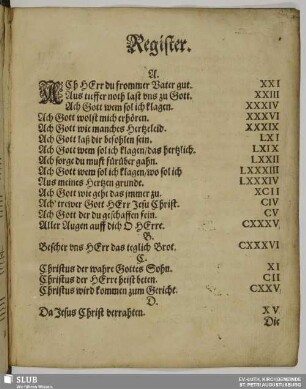 Register.
A.
ACh HErr du frommer Vater gut. XXI
Aus tieffer noth last vns zu Gott. XXIII
Ach Gott wem sol ich klagen. XXXIV
Ach Gott wolst mich erhören. XXXVI
Ach Gott wie manches Hertzeleid. XXXIX
Ach Gott laß dir befohlen sein. LXI
Ach Gott wem sol ich klagen/das hertzlich. LXIX
Ach sorge du must fürüber gahn. LXXII
Ach Gott wem sol ich klagen/wo sol ich LXXXIII
Aus meines Hertzen grunde. LXXXIV
Ach Gott wie geht das immer zu. XCII
Ach trewer Gott HErr Jesu Christ. CIV
Ach Gott der du geschaffen sein. CV
Aller Augen auff dich O HErre. CXXXV
B.
Bescher vns HErr das teglich Brot. CXXXVI
C.
Christus der wahre Gottes Sohn. XI
Christus der HErre heist beten. CII
Christus wird kommen zum Gericht. CXXV
D.
Da Jesus Christ verrahten. XV
Die
SLUB
Wir führen Wissen.
EV.-LUTH. KIRCHGEMEINDE
ST. PETRI AUGUSTUSBURG